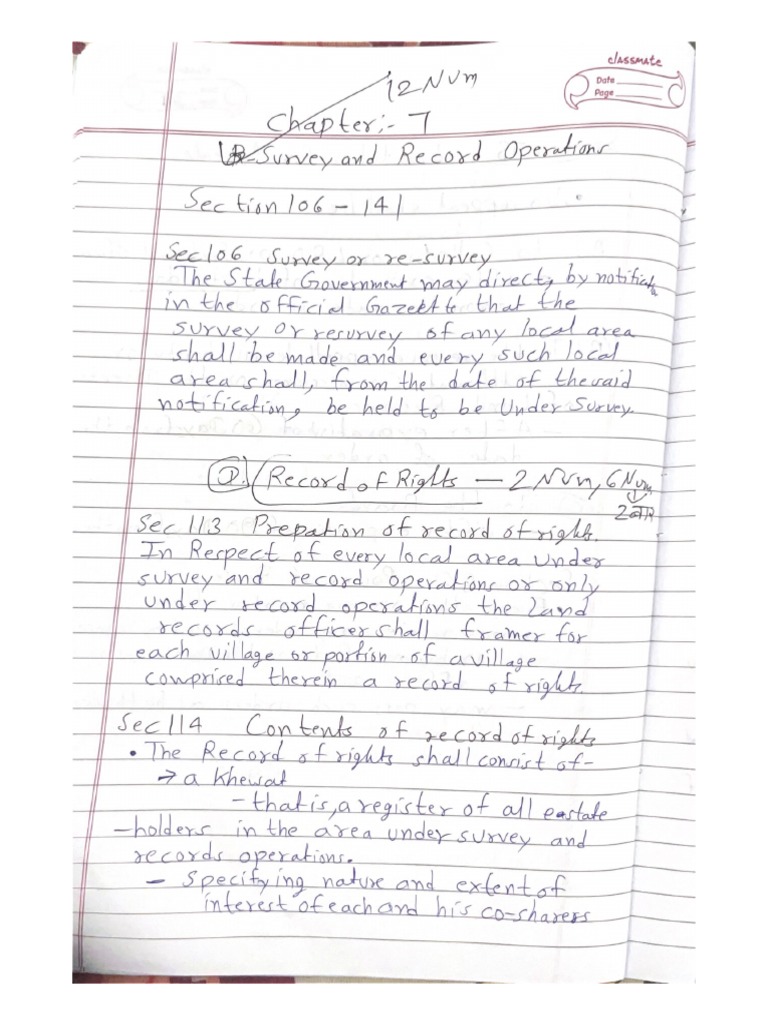 classmate
Date
Page
12 Num
Chapter:- 7
Survey and Record Operations
Section 106 - 141
Sec 106 Survey or re-survey
The State Government may direct, by notificatn
in the official Gazette that the
survey or resurvey of any local area
shall be made and every such local
area shall, from the date of the said
notification, be held to be Under Survey.
①. Record of Rights - 2 Num, 6 Num
2 बार
Sec 113 Prepation of record of rights.
In Respect of every local area under
survey and record operations or only
under record operations the land
records officer shall framer for
each village or portion of a village
comprised therein a record of rights.
Sec 114 Contents of record of rights
• The Record of rights shall consist of-
→ a Khewat
- that is, a register of all eastate
-holders in the area under survey and
records operations.
- Specifying nature and extent of
interest of each and his co-sharers